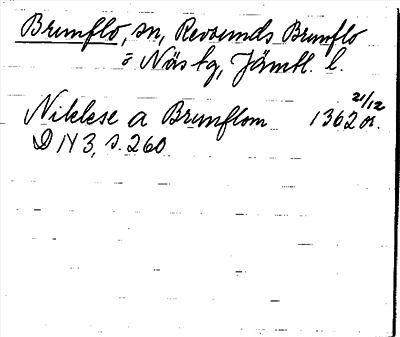 Brunflo, sn, Revsunds Brunflo
o Näs tg, Jämtl. l.
Niklese a Brunflom 1362 21/12 or.
DN 3, s. 260